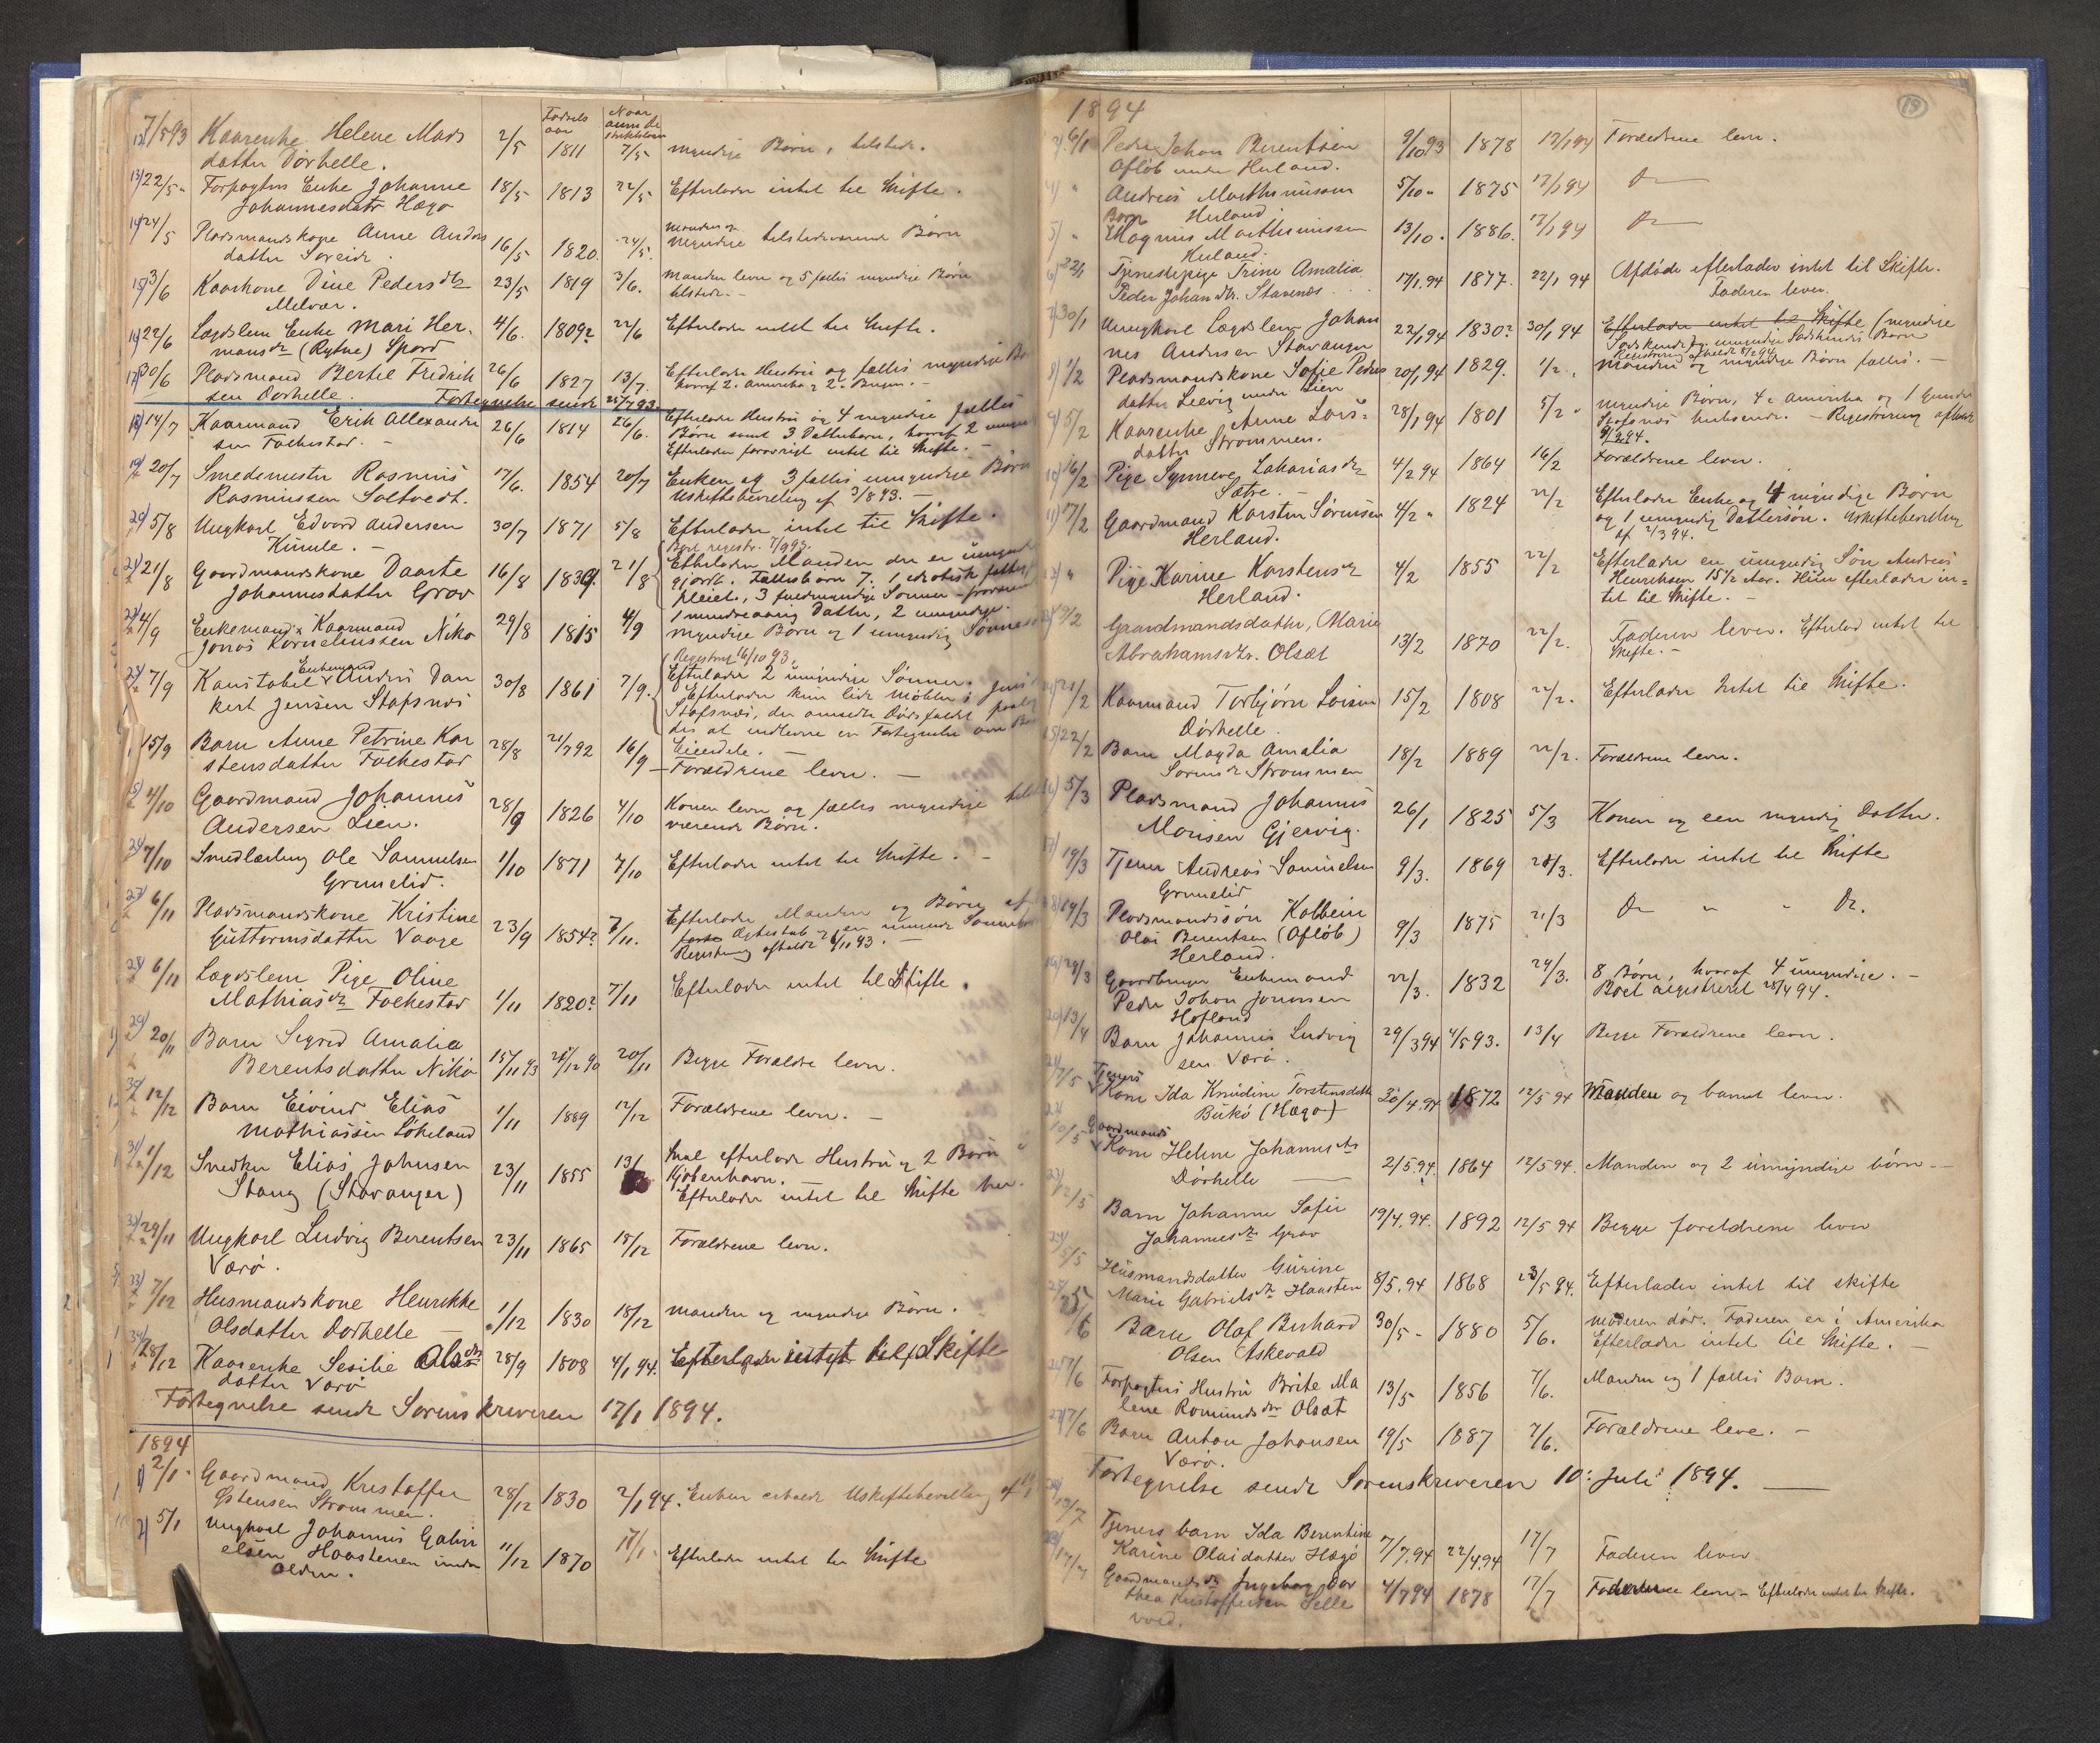 Fødsels
aar
Naar
anmeldt
12) 7/5 93 Kaarenke Helene Mads 2/5 1811 7/5 myndige Børn, tilstede.
datter Dørhelle.
13) 22/5 " Forpagters Enke Johanne 18/5 1813 22/5 Efterlader intet til Skifte.
Johannesdatr Hægø
14) 24/5 Pladsmandskone Anne Anders 16/5 1820. 24/5. Manden og
datter Soreide. myndige tilstedeværende Børn
15) 3/6 Kaarkone Dine Pedersdtr 23/5 1819 3/6. Manden lever og 5 fælles myndige Børn
Melvær. tilstede. -
16) 22/6 Lægdslem Enke Mari Her- 4/6. 1809? 22/6 Efterlader intet til Skifte.
mansdr (Rytne) Spord
17) 30/6 Pladsmand Bertel Fredrik 26/6 1827 13/7. Efterlader Hustru og fælles myndige
sen Dorhelle. hvoraf 2 i Amerika og 2 i Bergen. -
Fortegnelse sendt 25/7 93
18) 14/7 Kaarmand Erik Allexander 26/6 1814 26/6. Efterlader Hustru og 4 myndige fælles
sen Folkestad. - Børn samt 3 Datterbørn, hvoraf 2
Efterlader forøvrigt intet til Skifte. -
19) 20/7 Smedemester Rasmus 17/6. 1854 20/7 Enken og 3 fælles umyndige Børn
Rasmussen Saltvedt. Uskiftebevilling af 3/8 93. -
20) 5/8 Ungkarl Edvard Andersen 30/7 1871 5/8 Efterlader intet til Skifte.
Hinnle. -
Boet registr. 7/9 93.
21) 21/8 Gaardmandskone Daarte 16/8 1839. 21/8 Efterlader Manden der er
Johannesdatter Grov gjort. Fællesbørn 7. 1
pleiet, 3 fuldmyndige Sønner
1 mindreaarig Datter, 2 umyndige.
22) 4/9 Enkemand & Kaarmand 29/8 1815 4/9 myndige Børn og 1 umyndig
Jonas Korneliussen Nikø
Registreret 16/10 93.
23) 7/9 Enkemand
Konstabel Andres Dan 30/8 1861 7/9. Efterlader 2 umyndige Sønner.
kert Jensen Stafsnæs Efterlader kun lidt Møbler i
Stafsnæs, der anmeldte Dødsfaldet
des at indlevere en Fortegnelse over
Eiendele. -
15/9 Barn Anne Petrine Kar 28/8 21/7 92 16/9 Forældrene lever. -
stensdatter Folkestad
25) 4/10 Gaardmand Johannes 28/9 1826 4/10 Konen lever og fælles myndige
Andersen Lien. værende Børn.
26) 7/10 Smedlærling Ole Samuelsen 1/10 1871 7/10 Efterlader intet til Skifte. -
Grimelid.
27) 6/11 Pladsmandskone Kristine 23/9 1854? 7/11. Efterlader Manden og Børn af
Guttormsdatter Vaage første Ægteskab og en umyndig
Registrering afholdt 6/11 93. -
28) 6/11 Lægdslem Pige Oline 1/11 1820? 7/11 Efterlader intet til Skifte.
Mathiasdr Folkestad
29) 20/11 Barn Sigrid Amalia 15/11 93 28/12 90 20/11 Begge Forældre lever.
Berentsdatter Nikø
30) 12/12 Barn Eivind Elias 1/11 1889 12/12 Forældrene lever. -
Mathiassen Løkeland
31) 1/12 Snedker Elias Johnsen 23/11 1855 13/ Skal efterlade Hustru og 2 Børn i
Stang (Stavanger) Kjøbenhavn. -
Efterlader intet til Skifte her.
32) 29/11 Ungkarl Ludvig Berentsen 23/11 1865 15/12 Forældrene lever.
Værø.
33) 7/12 Husmandskone Henrikke 1/12 1830 18/12 Manden og myndige Børn.
Olsdatter Dorhelle
34) 28/12 Kaarenke Sesilie Ols 28/9 1808 4/1 94. Efterlader intet til Skifte
datter Værø
Fortegnelse sendt Sorenskriveren 17/1 1894.
1894
1) 2/1. Gaardmand Kristoffer 28/12 1830 2/1 94. Enken erholdt Uskiftebevilling af
Østensen Strømmen.
2) 5/1 Ungkarl Johannes Gabri 11/12 1870 17/1. Efterlader intet til Skifte
elsen Haastenen under
Olden.
19
1894
3) 6/1 Peder Johan Berentsen 9/10 93 1878 17/1 94 Forældrene lever.
Afløb under Herland.
4) " Andreas Mathiassen 5/10 " 1875 17/1 94 Do
Herland
5) " Barn
Magnus Mathiassen 13/10. 1886. 17/1 94 Do
Herland.
6) 22/1 Tjenestepige Trine Amalia 17/1 94 1877. 22/1 94 Afdøde efterlader intet til Skifte.
Peder Johandtr. Stavenæs Faderen lever.
7) 30/1 Ungkarl Lægdslem Johan 22/1 94 1830? 30/1 94 Efterlader intet til Skifte (myndige
nes Andersen Stavanger Sødskende og umyndige Sødskendes Børn
Registrering afholdt 5/2 94
8) 1/2 Pladsmandskone Sofie Peders 20/1 94 1829. 1/2. Manden og myndige Børn fælles. -
datter Leevig under Lien
9) 5/2 Kaarenke Anne Lars= 28/1 94 1801 5/2 " myndige Børn, 4 i Amerika og 1 
datter Strømmen. Stafsnæs - Registrering afholdt
9/2 94.
10) 16/2 Pige Synneve Zakariasdr 4/2 94 1864 16/2 Forældrene lever.
Sætre. -
11) 17/2 Gaardmand Karsten Sørensen 4/2 " 1824 22/2 Efterlader Enke og 4 myndige Børn
Herland. og 1 umyndig Dattersøn. Uskiftebevilling
af 2/3 94.
12) " Pige Karine Karstensdr 4/2 1855 22/2 Efterlader en umyndig Søn Andreas
Herland. Henriksen 15½ Aar. Hun efterlader in=
tet til Skifte. -
13) 19/2 Gaardmandsdatter, Marie 13/2 1870 22/2. Faderen lever. Efterlod intet til
Abrahamsdtr. Olset Skifte. -
14) 21/2 Kaarmand Torbjørn Larsen 15/2 1808 22/2. Efterlader Intet til Skifte.
Dørhelle.
15) 22/2 Barn Magda Amalia 18/2 1889 22/2. Forældrene lever.
Sørensdr Strømmen
16) 5/3 Pladsmand Johannes 26/1 1825 5/3 Konen og een myndig Datter.
Monsen Gjervig.
17) 19/3 Tjener Andreas Samuelsen 9/3. 1869 21/3. Efterlader intet til Skifte
Grimelid
18) 19/3 Pladsmandssøn Kolbein 9/3 1875 21/3 Do " " Do.
Olai Berentsen (Afløb)
Herland.
19) 29/3 Gaardbruger Enkemand 22/3. 1832 29/3. 8 Børn, hvoraf 4 umyndige. -
Peder Johan Jonassen Boet registreret 28/4 94.
Hofland
20) 13/4 Barn Johannes Ludvig 29/3 94 4/5 93. 13/4 Begge Forældrene lever.
sen Værø.
21) 7/5 Tjeners
Kone Ida Knudine Torstensdatter 30/4 94 1872 12/5 94 Manden og barnet lever.
Birkø (Hægø)
22) 10/5 Gaardmands
Kone Helene Johannesdtr 2/5 94. 1864 12/5 94. Manden og 2 umyndige børn -
Dørhelle
23) 12/5 Barn Johanne Sofie 19/4 94. 1892 12/5 94 Begge foreldrene lever
Johannesdtr Grov
24) 5/5 Husmandsdatter Gurine 8/5 94 1868 23/5 94. Efterlader intet til skifte
Marie Gabrielsdtr Haasten
25) 5/6 Barn Olaf Berhard 30/5 - 1880 5/6. Moderen død. Faderen er i Amerika
Olsen Askevold Efterlader intet til Skifte. -
26) 7/6 Forpagters Hustru Brite Ma 13/5 1856 7/6. Manden og 1 fælles Barn.
lene Romundsdtr Olset
27) 7/6 Barn Anton Johansen 19/5 1887 7/6. Forældrene leve. -
Værø.
Fortegnelse sendt Sorenskriveren 10: Juli 1894.
28) 13/7 Tjeners barn Ida Berentine 7/7 94 22/4 94 17/7 Faderen lever
Karine Olaidatter Hægø
29) 17/7 Gaardmandsdtr Ingeborg Dor 4/7 94 1878 17/7 Forældrene lever - Efterlader intet til Skifte.
thea Kristoffersen Selle
vold.